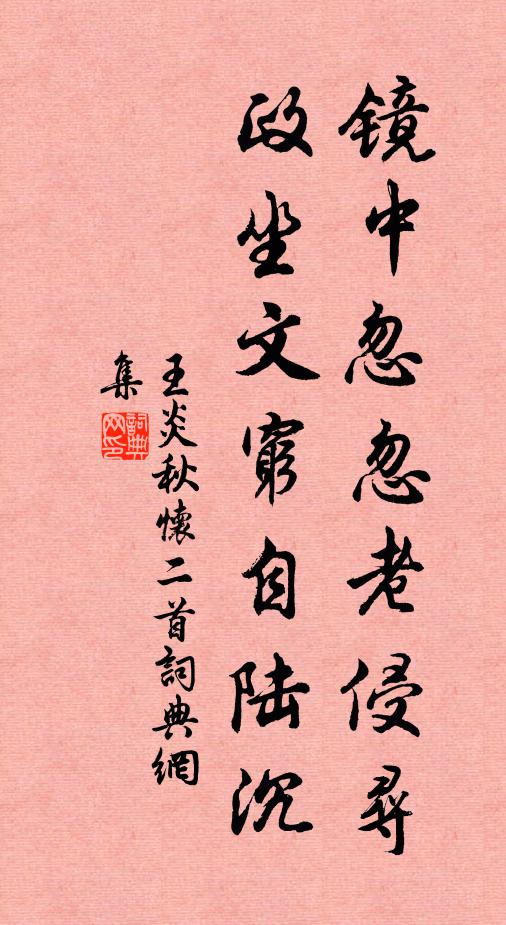 镜中忽忽老侵寻
政坐文穷自陆沉
王炎秋懷二首詞典網
集
詞典网印